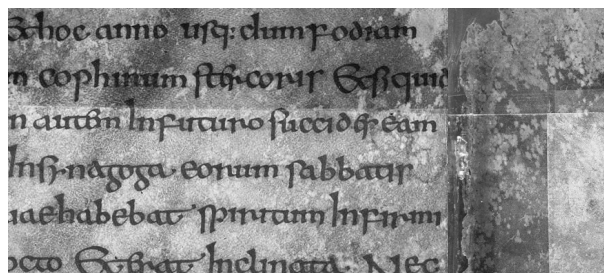 & hoc anno usq: dum fodiam
m cophinum stercoris & siquid
n autem In futuro succides eam
In synagoga eorum sabbatis
uae habebat spiritum Infirmi
octo & erat Inclinata Nec